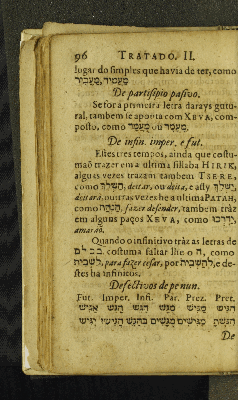 96 TRATADO. II.
lugar do simples que havia de ter, como
מַעֲמִיד, מַעֲבִיר
De partisipio pasivo.
Se for a primeira letra darays gutu-
ral, tambem se aponta com XEVA, com-
posto, como מָעֳמָד ou
De infin. imper. e fut.
Estes tres tempos, ainda que costu-
maõ trazer em a ultima sillaba HIRIK,
algũas vezes trazem tambem TSERE,
como הַשְׁלֵךְ, deitar, ou deita, e assy יַשְׁלֵךְ
deitará, outras vezes he a ultima PATAH,
como fazer desender, tambem tràz
em alguns paços XEVA, como יַדְרְכוּ
amaraõ.
Quando o infinitivo tràz as letras de
בכלם costuma faltar lhe o ה, como
לַשְׁבִּית, para fazer cesar, por לְהַשְׁבִּית, e de-
stes ha infinitos.
Defectivos de pe nun.
Fut. Imper. Infi. Par. Prez. Pret.
הִגִּישׁ מַגִּישׁ מֻגָּשׁ הַגֵּשׁ הַגֵּשׁ אַגִּישׁ
הִגַּשְׁתָּ מַגִּישִׁים מֻגָּשִׁים בְּהַגֵּשׁ הַגִּישׁוּ יַגִּישׁוּ
De